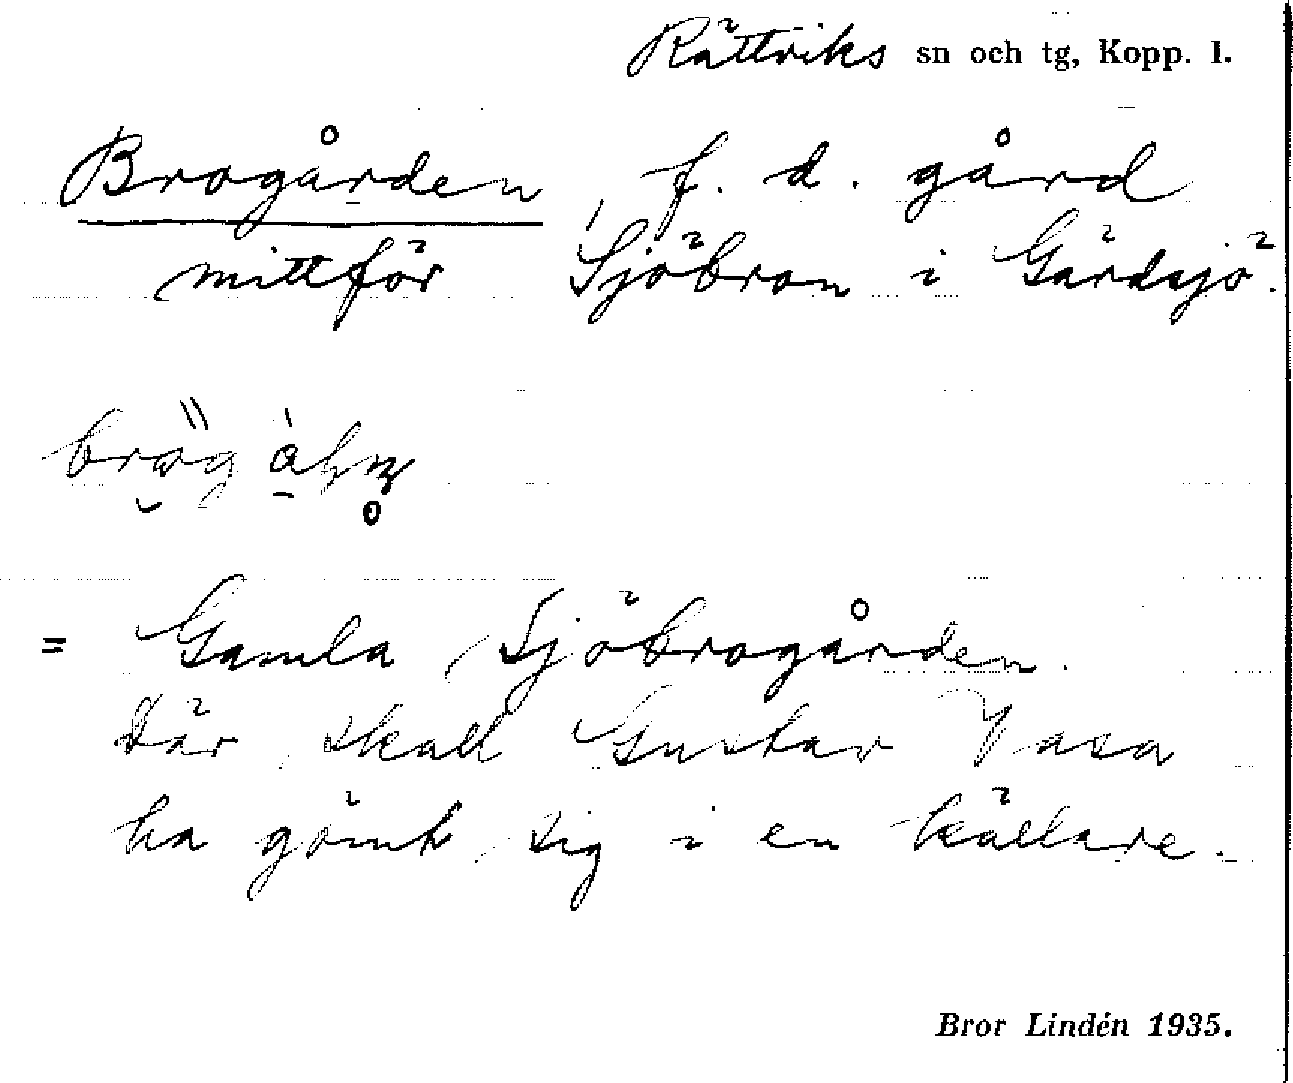 Rättviks sn och tg, Kopp. l.
Brogården, f. d. gård
mittför Sjöbron i Gärdsjö.
= Gamla Sjöbrogården.
Där skall Gustav Vasa
ha gömt sig i en källare.
Bror Lindén 1935.